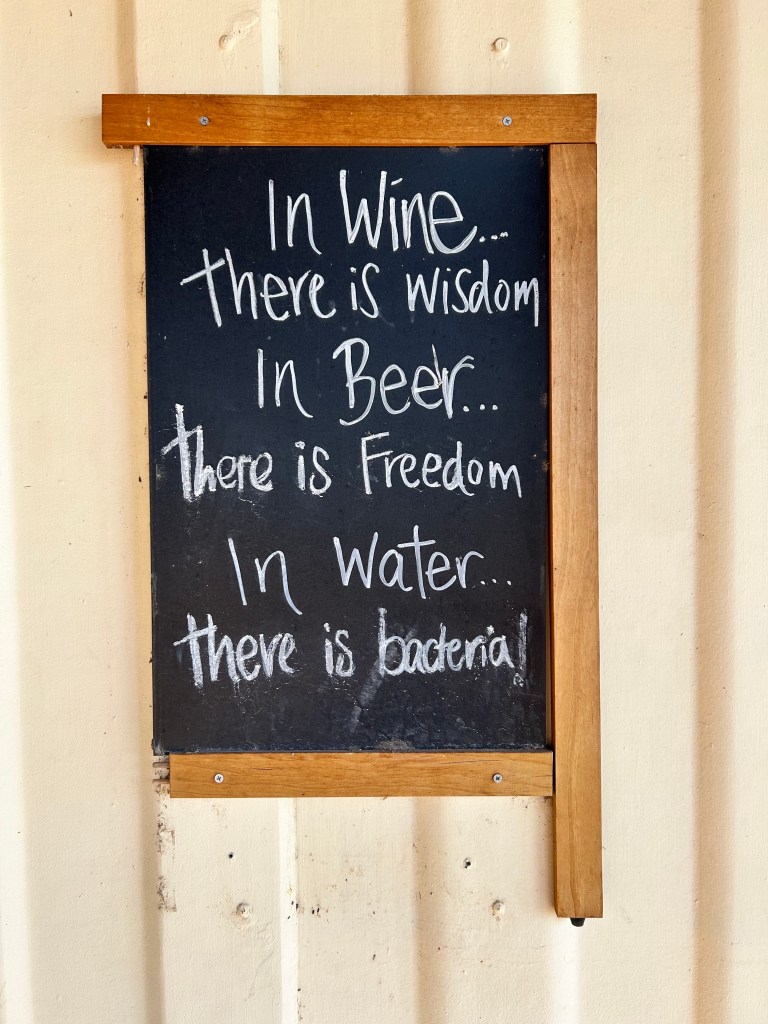 In Wine...
there is wisdom
In Beer...
there is Freedom
In Water...
there is bacteria!